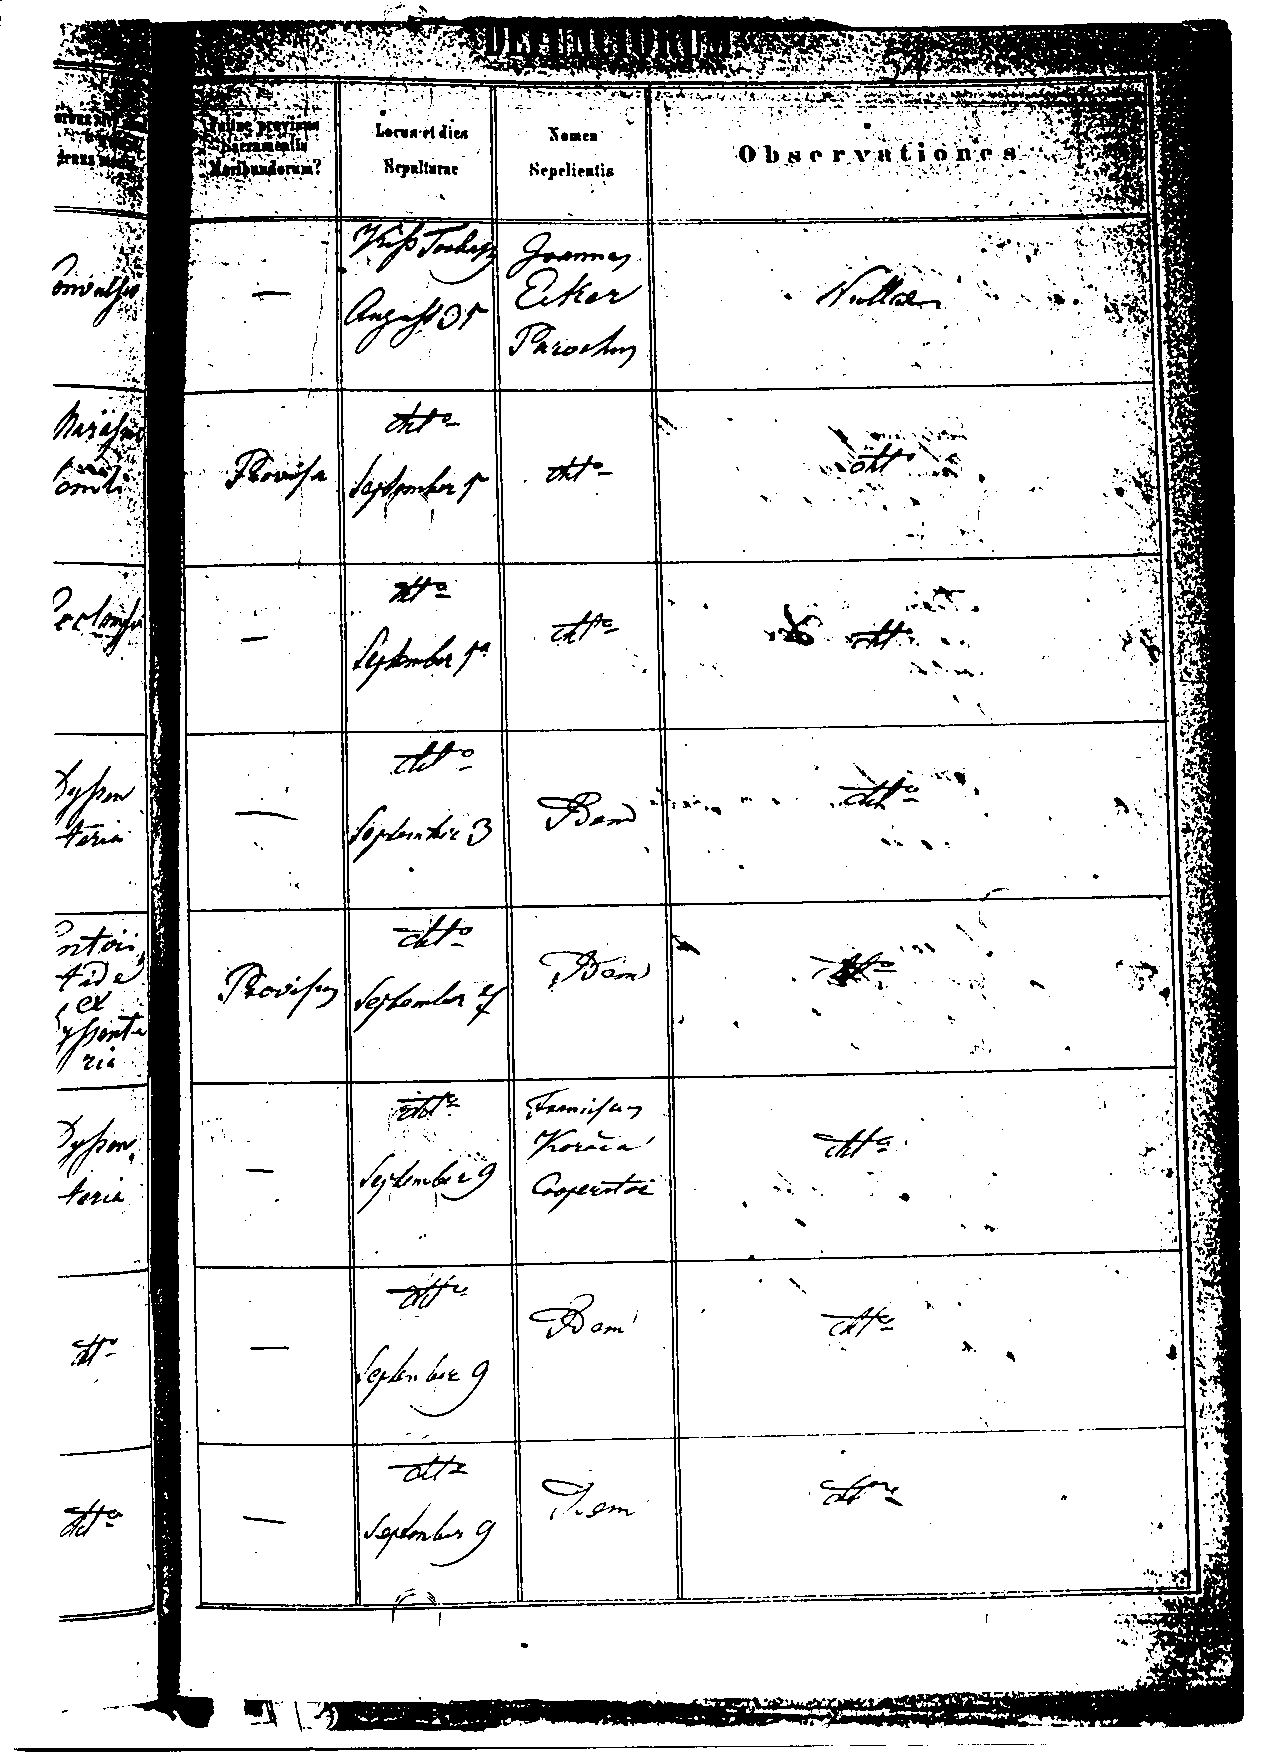 DEFUNCTORUM
54
Fuitne provisus
Sacramentis
Moribundorum?
Locus et dies
Sepulturae
Nomen
Sepelientis
Observationes
—
Augusti 31
Joannes
Ecker
Parochus
Nullae
Provisa
dtto
September 1
dtto
dtto
—
dtto
September 1a
dtto
dtto
Dyssen
teria
—
dtto
September 3
Idem
dtto
ex
yssente
ria
Provisus
dtto
September 7
Idem
dtto
Dyssen
teria
—
dtto
September 9
Franciscus
Cooperator
dtto
dtto
—
dtto
September 9
Idem
dtto
dtto
—
dtto
September 9
Idem
dtto